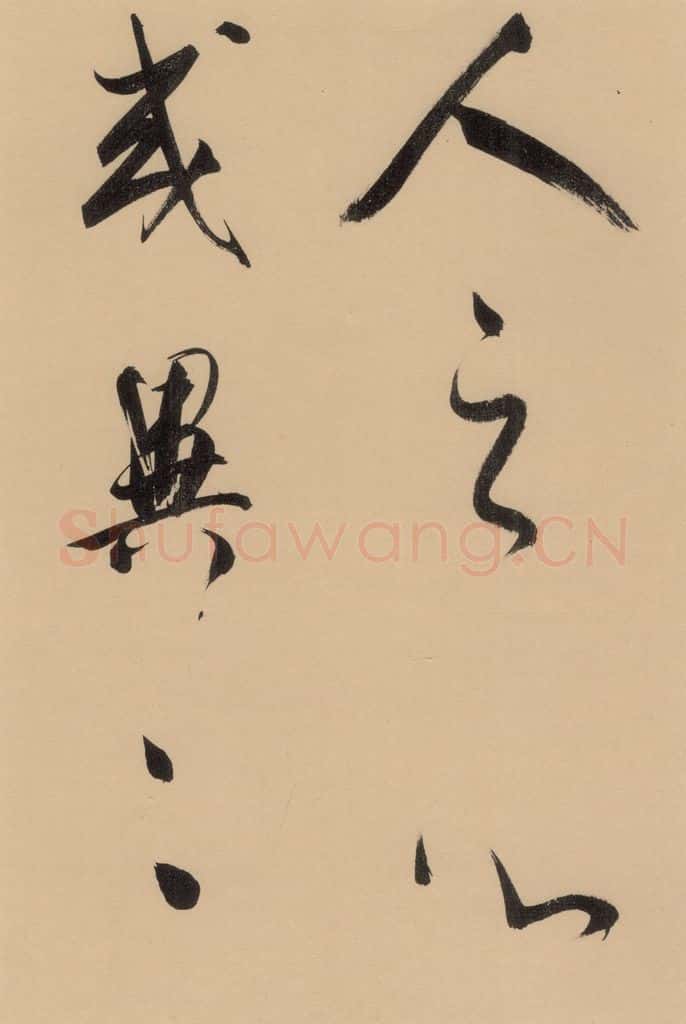 人之心
或異二
Shufawang.CN